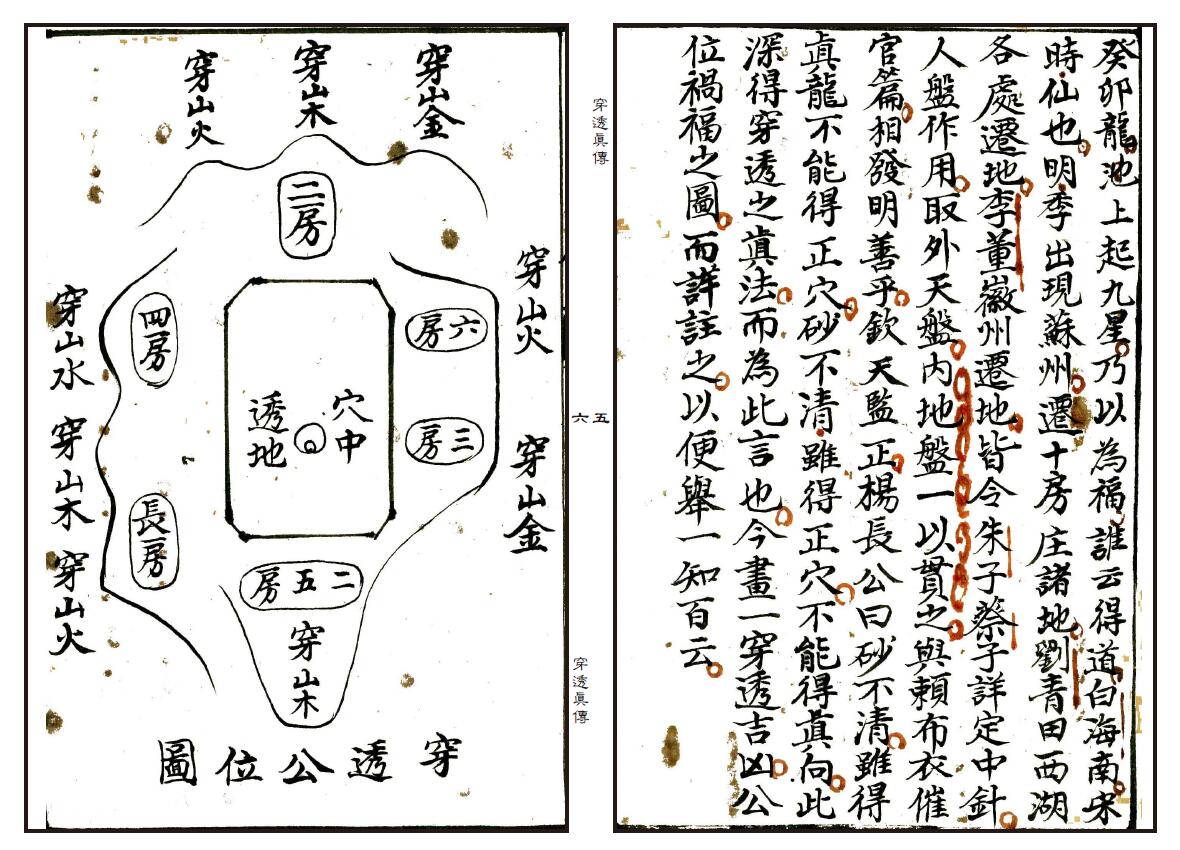 癸卯龍池上起九星乃以為福誰云得道白海南宋
時仙也明季出現蘇州遷十房庄諸地劉青田西湖
各處遷地李董徽州遷地皆令朱子蔡子詳定中針
人盤作用取外天盤內地盤一以貫之與賴布衣催
官篇相發明善乎欽天監正楊長公曰砂不清雖得
真龍不能得正穴砂不清雖得正穴不能得真向此
深得穿透之真法而為此言也今畫一穿透吉凶公
位禍福之圖而詳註之以便舉一知百云
穿透真傳
五六
穿透真傳
穿山金
穿山木
穿山火
二房
穿山火
六房
三房
穿山金
穴中
透地
四房
長房
穿山水
穿山木
穿山火
二五房
穿山木
穿透公位圖